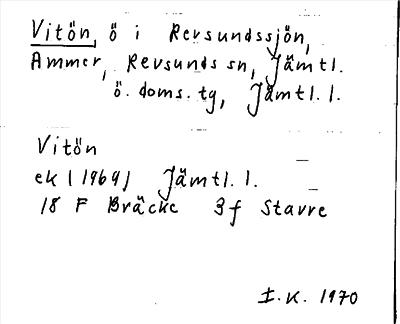 Vitön, ö i Revsundssjön,
Ammer, Revsunds sn, Jämtl.
ö. doms. tg, Jämtl. l.
Vitön
ek (1969) Jämtl. l.
18 F Bräcke 3f Stavre
I.K. 1970